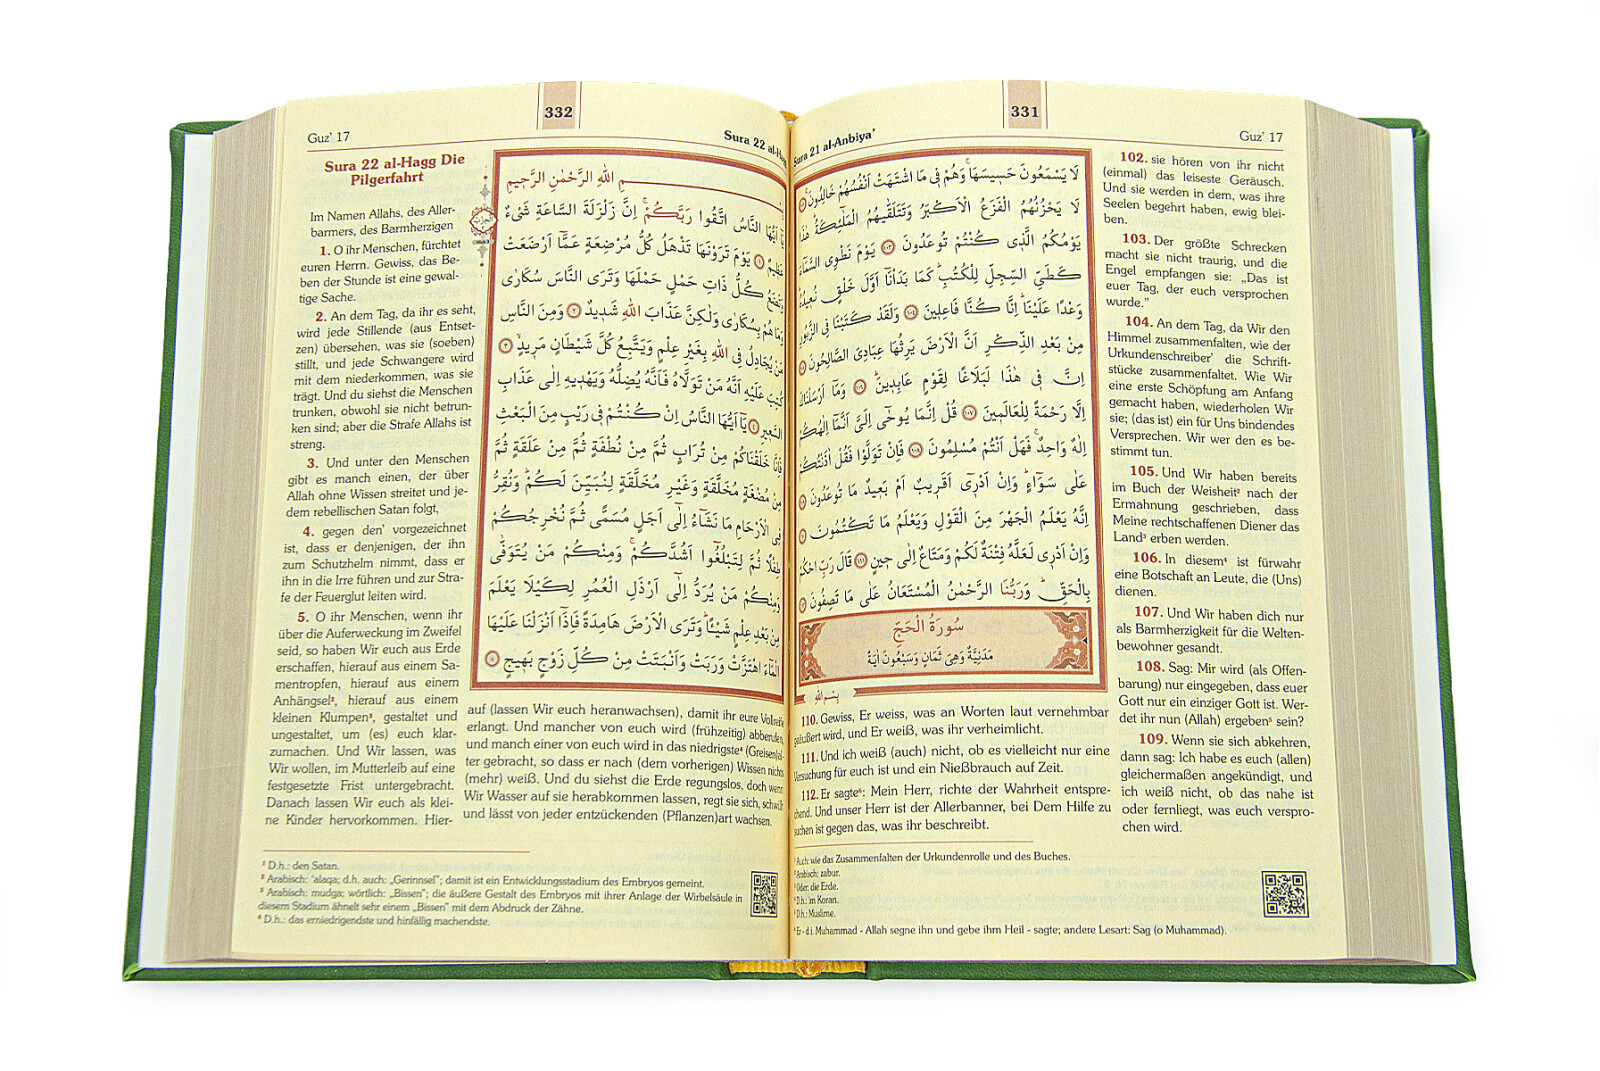 331
Sura 21 al-Anbiya'
Guz' 17
لَا يَسْمَعُونَ حَسِيسَهَا وَهُمْ فِى مَا اشْتَهَتْ اَنْفُسُهُمْ خَالِدُونَ
لَا يَحْزُنُهُمُ الْفَزَعُ الْاَكْبَرُ وَتَتَلَقّٰيهُمُ الْمَلٰٓئِكَةُ هٰذَا
يَوْمُكُمُ الَّذٖى كُنْتُمْ تُوعَدُونَ ١٠٣ يَوْمَ نَطْوِى السَّمَٓاءَ
كَطَيِّ السِّجِلِّ لِلْكُتُبِ كَمَا بَدَأْنَٓا اَوَّلَ خَلْقٍ نُعٖيدُهُ
وَعْدًا عَلَيْنَا اِنَّا كُنَّا فَاعِلٖينَ ١٠٤ وَلَقَدْ كَتَبْنَا فِى الزَّبُورِ
مِنْ بَعْدِ الذِّكْرِ اَنَّ الْاَرْضَ يَرِثُهَا عِبَادِىَ الصَّالِحُونَ
اِنَّ فٖى هٰذَا لَبَلَاغًا لِقَوْمٍ عَابِدٖينَ ١٠٦ وَمَٓا اَرْسَلْنَاكَ
اِلَّا رَحْمَةً لِلْعَالَمٖينَ ١٠٧ قُلْ اِنَّمَا يُوحٰٓى اِلَىَّ اَنَّمَٓا اِلٰهُكُمْ
اِلٰهٌ وَاحِدٌ فَهَلْ اَنْتُمْ مُسْلِمُونَ ١٠٨ فَاِنْ تَوَلَّوْا فَقُلْ اٰذَنْتُكُمْ
عَلٰى سَوَٓاءٍ وَاِنْ اَدْرٖٓى اَقَرٖيبٌ اَمْ بَعٖيدٌ مَا تُوعَدُونَ
اِنَّهُ يَعْلَمُ الْجَهْرَ مِنَ الْقَوْلِ وَيَعْلَمُ مَا تَكْتُمُونَ
وَاِنْ اَدْرٖى لَعَلَّهُ فِتْنَةٌ لَكُمْ وَمَتَاعٌ اِلٰى حٖينٍ ١١١ قَالَ رَبِّ احْكُمْ
بِالْحَقِّ وَرَبُّنَا الرَّحْمٰنُ الْمُسْتَعَانُ عَلٰى مَا تَصِفُونَ
سُورَةُ الْحَجِّ
مَدَنِيَّةٌ وَهِىَ ثَمَانٍ وَسَبْعُونَ اٰيَةً
بِسْمِ اللّٰهِ
102. sie hören von ihr nicht
(einmal) das leiseste Geräusch.
Und sie werden in dem, was ihre
Seelen begehrt haben, ewig blei-
ben.
103. Der größte Schrecken
macht sie nicht traurig, und die
Engel empfangen sie: „Das ist
euer Tag, der euch versprochen
wurde.“
104. An dem Tag, da Wir den
Himmel zusammenfalten, wie der
Urkundenschreiber¹ die Schrift-
stücke zusammenfaltet. Wie Wir
eine erste Schöpfung am Anfang
gemacht haben, wiederholen Wir
sie; (das ist) ein für Uns bindendes
Versprechen. Wir wer den es be-
stimmt tun.
105. Und Wir haben bereits
im Buch der Weisheit² nach der
Ermahnung geschrieben, dass
Meine rechtschaffenen Diener das
Land³ erben werden.
106. In diesem⁴ ist fürwahr
eine Botschaft an Leute, die (Uns)
dienen.
107. Und Wir haben dich nur
als Barmherzigkeit für die Welten-
bewohner gesandt.
108. Sag: Mir wird (als Offen-
barung) nur eingegeben, dass euer
Gott nur ein einziger Gott ist. Wer-
det ihr nun (Allah) ergeben⁵ sein?
109. Wenn sie sich abkehren,
dann sag: Ich habe es euch (allen)
gleichermaßen angekündigt, und
ich weiß nicht, ob das nahe ist
oder fernliegt, was euch verspro-
chen wird.
110. Gewiss, Er weiss, was an Worten laut vernehmbar
geäußert wird, und Er weiß, was ihr verheimlicht.
111. Und ich weiß (auch) nicht, ob es vielleicht nur eine
Versuchung für euch ist und ein Nießbrauch auf Zeit.
112. Er sagte⁶: Mein Herr, richte der Wahrheit entspre-
chend. Und unser Herr ist der Allerbanner, bei Dem Hilfe zu
suchen ist gegen das, was ihr beschreibt.
¹ Auch: wie das Zusammenfalten der Urkundenrolle und des Buches.
² Arabisch: zabur.
³ Oder: die Erde.
⁴ D.h.: im Koran.
⁵ D.h.: Muslime.
⁶ Er - d.i. Muhammad - Allah segne ihn und gebe ihm Heil - sagte; andere Lesart: Sag (o Muhammad).
332
Guz' 17
Sura 22 al-Hagg
Sura 22 al-Hagg Die
Pilgerfahrt
Im Namen Allahs, des Aller-
barmers, des Barmherzigen
1. O ihr Menschen, fürchtet
euren Herrn. Gewiss, das Be-
ben der Stunde ist eine gewal-
tige Sache.
2. An dem Tag, da ihr es seht,
wird jede Stillende (aus Entset-
zen) übersehen, was sie (soeben)
stillt, und jede Schwangere wird
mit dem niederkommen, was sie
trägt. Und du siehst die Menschen
trunken, obwohl sie nicht betrun-
ken sind; aber die Strafe Allahs ist
streng.
3. Und unter den Menschen
gibt es manch einen, der über
Allah ohne Wissen streitet und je-
dem rebellischen Satan folgt,
4. gegen den¹ vorgezeichnet
ist, dass er denjenigen, der ihn
zum Schutzhelm nimmt, dass er
ihn in die Irre führen und zur Stra-
fe der Feuerglut leiten wird.
5. O ihr Menschen, wenn ihr
über die Auferweckung im Zweifel
seid, so haben Wir euch aus Erde
erschaffen, hierauf aus einem Sa-
mentropfen, hierauf aus einem
Anhängsel², hierauf aus einem
kleinen Klumpen³, gestaltet und
ungestaltet, um (es) euch klar-
zumachen. Und Wir lassen, was
Wir wollen, im Mutterleib auf eine
festgesetzte Frist untergebracht.
Danach lassen Wir euch als klei-
ne Kinder hervorkommen. Hier-
auf (lassen Wir euch heranwachsen), damit ihr eure Vollreife
erlangt. Und mancher von euch wird (frühzeitig) abberufen,
und manch einer von euch wird in das niedrigste⁴ (Greisen)al-
ter gebracht, so dass er nach (dem vorherigen) Wissen nichts
(mehr) weiß. Und du siehst die Erde regungslos, doch wenn
Wir Wasser auf sie herabkommen lassen, regt sie sich, schwillt
und lässt von jeder entzückenden (Pflanzen)art wachsen.
اللّٰهِ الرَّحْمٰنِ الرَّحٖيمِ
يَٓا اَيُّهَا النَّاسُ اتَّقُوا رَبَّكُمْ اِنَّ زَلْزَلَةَ السَّاعَةِ شَىْءٌ
عَظٖيمٌ ١ يَوْمَ تَرَوْنَهَا تَذْهَلُ كُلُّ مُرْضِعَةٍ عَمَّٓا اَرْضَعَتْ
وَتَضَعُ كُلُّ ذَاتِ حَمْلٍ حَمْلَهَا وَتَرَى النَّاسَ سُكَارٰى
وَمَا هُمْ بِسُكَارٰى وَلٰكِنَّ عَذَابَ اللّٰهِ شَدٖيدٌ ٢ وَمِنَ النَّاسِ
مَنْ يُجَادِلُ فِى اللّٰهِ بِغَيْرِ عِلْمٍ وَيَتَّبِعُ كُلَّ شَيْطَانٍ مَرٖيدٍ ٣
كُتِبَ عَلَيْهِ اَنَّهُ مَنْ تَوَلَّاهُ فَاَنَّهُ يُضِلُّهُ وَيَهْدٖيهِ اِلٰى عَذَابِ
السَّعٖيرِ ٤ يَٓا اَيُّهَا النَّاسُ اِنْ كُنْتُمْ فٖى رَيْبٍ مِنَ الْبَعْثِ
فَاِنَّا خَلَقْنَاكُمْ مِنْ تُرَابٍ ثُمَّ مِنْ نُطْفَةٍ ثُمَّ مِنْ عَلَقَةٍ ثُمَّ
مِنْ مُضْغَةٍ مُخَلَّقَةٍ وَغَيْرِ مُخَلَّقَةٍ لِنُبَيِّنَ لَكُمْ وَنُقِرُّ
فِى الْاَرْحَامِ مَا نَشَٓاءُ اِلٰٓى اَجَلٍ مُسَمًّى ثُمَّ نُخْرِجُكُمْ
طِفْلًا ثُمَّ لِتَبْلُغُٓوا اَشُدَّكُمْ وَمِنْكُمْ مَنْ يُتَوَفّٰى
وَمِنْكُمْ مَنْ يُرَدُّ اِلٰٓى اَرْذَلِ الْعُمُرِ لِكَيْلَا يَعْلَمَ
مِنْ بَعْدِ عِلْمٍ شَيْـًٔا وَتَرَى الْاَرْضَ هَامِدَةً فَاِذَٓا اَنْزَلْنَا عَلَيْهَا
الْمَٓاءَ اهْتَزَّتْ وَرَبَتْ وَاَنْبَتَتْ مِنْ كُلِّ زَوْجٍ بَهٖيجٍ ٥
¹ D.h.: den Satan.
² Arabisch: 'alaqa; d.h. auch: „Gerinnsel“; damit ist ein Entwicklungsstadium des Embryos gemeint.
³ Arabisch: mudga; wörtlich: „Bissen“; die äußere Gestalt des Embryos mit ihrer Anlage der Wirbelsäule in
diesem Stadium ähnelt sehr einem „Bissen“ mit dem Abdruck der Zähne.
⁴ D.h.: das erniedrigendste und hinfällig machendste.